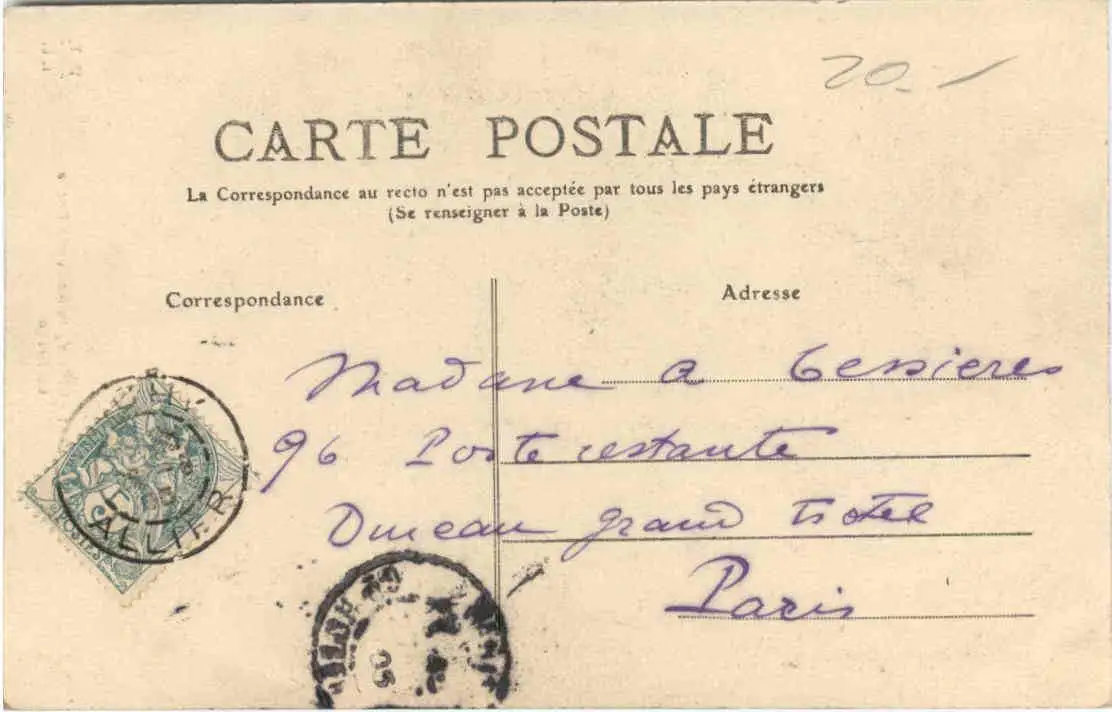 20.-
CARTE POSTALE
La Correspondance au recto n'est pas acceptée par tous les pays étrangers
(Se renseigner à la Poste)
Correspondance
Adresse
Madame a Tessieres
96 Poste restante
Bureau grand hotel
Paris
ALLIER
POSTES
05